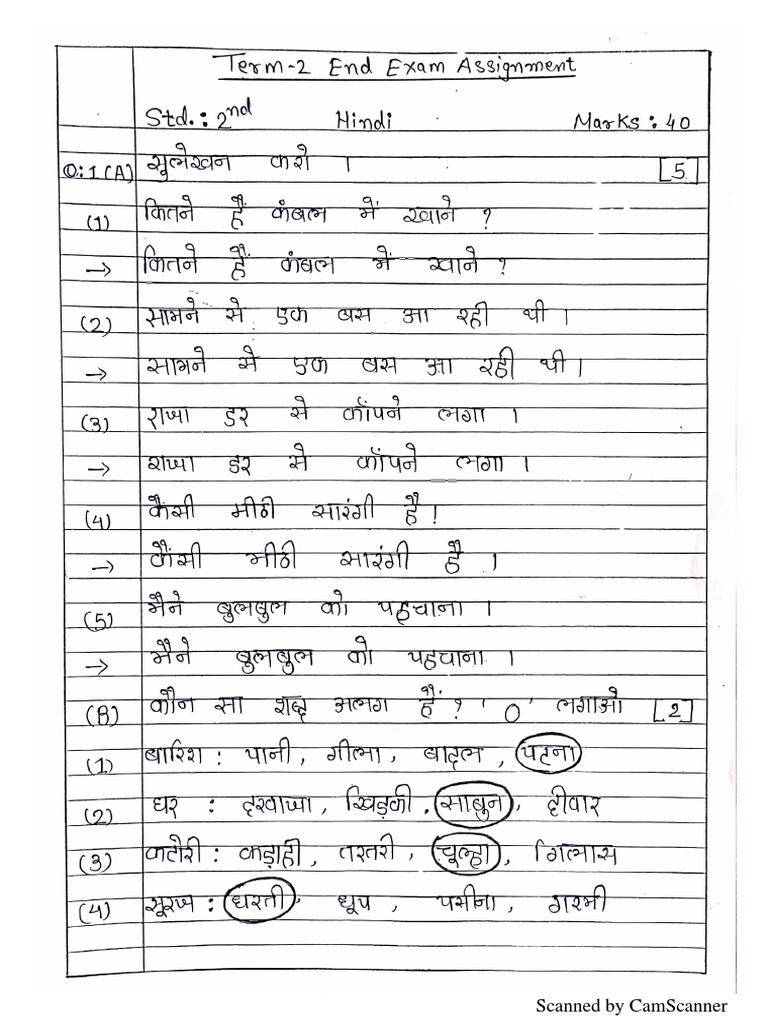 Term-2 End Exam Assignment
Std.: 2nd Hindi Marks: 40
Q:1(A) सुलेखन करो । [5]
(1) कितने हैं कंबल में खाने ?
→ कितने हैं कंबल में खाने ?
(2) सामने से एक बस आ रही थी ।
→ सामने से एक बस आ रही थी ।
(3) राजा डर से काँपने लगा ।
→ राजा डर से काँपने लगा ।
(4) कैसी मीठी सारंगी है !
→ कैसी मीठी सारंगी है ।
(5) मैंने बुलबुल को पहचाना ।
→ मैंने बुलबुल को पहचाना ।
(B) कौन सा शब्द अलग हैं ? 'O' लगाओ [2]
(1) बारिश : पानी, गीला, बादल, पहना
(2) घर : दरवाजा, खिड़की, साबुन, दीवार
(3) कटोरी : कड़ाही, तश्तरी, चूल्हा, गिलास
(4) सूरज : धरती, धूप, पसीना, गरमी
Scanned by CamScanner